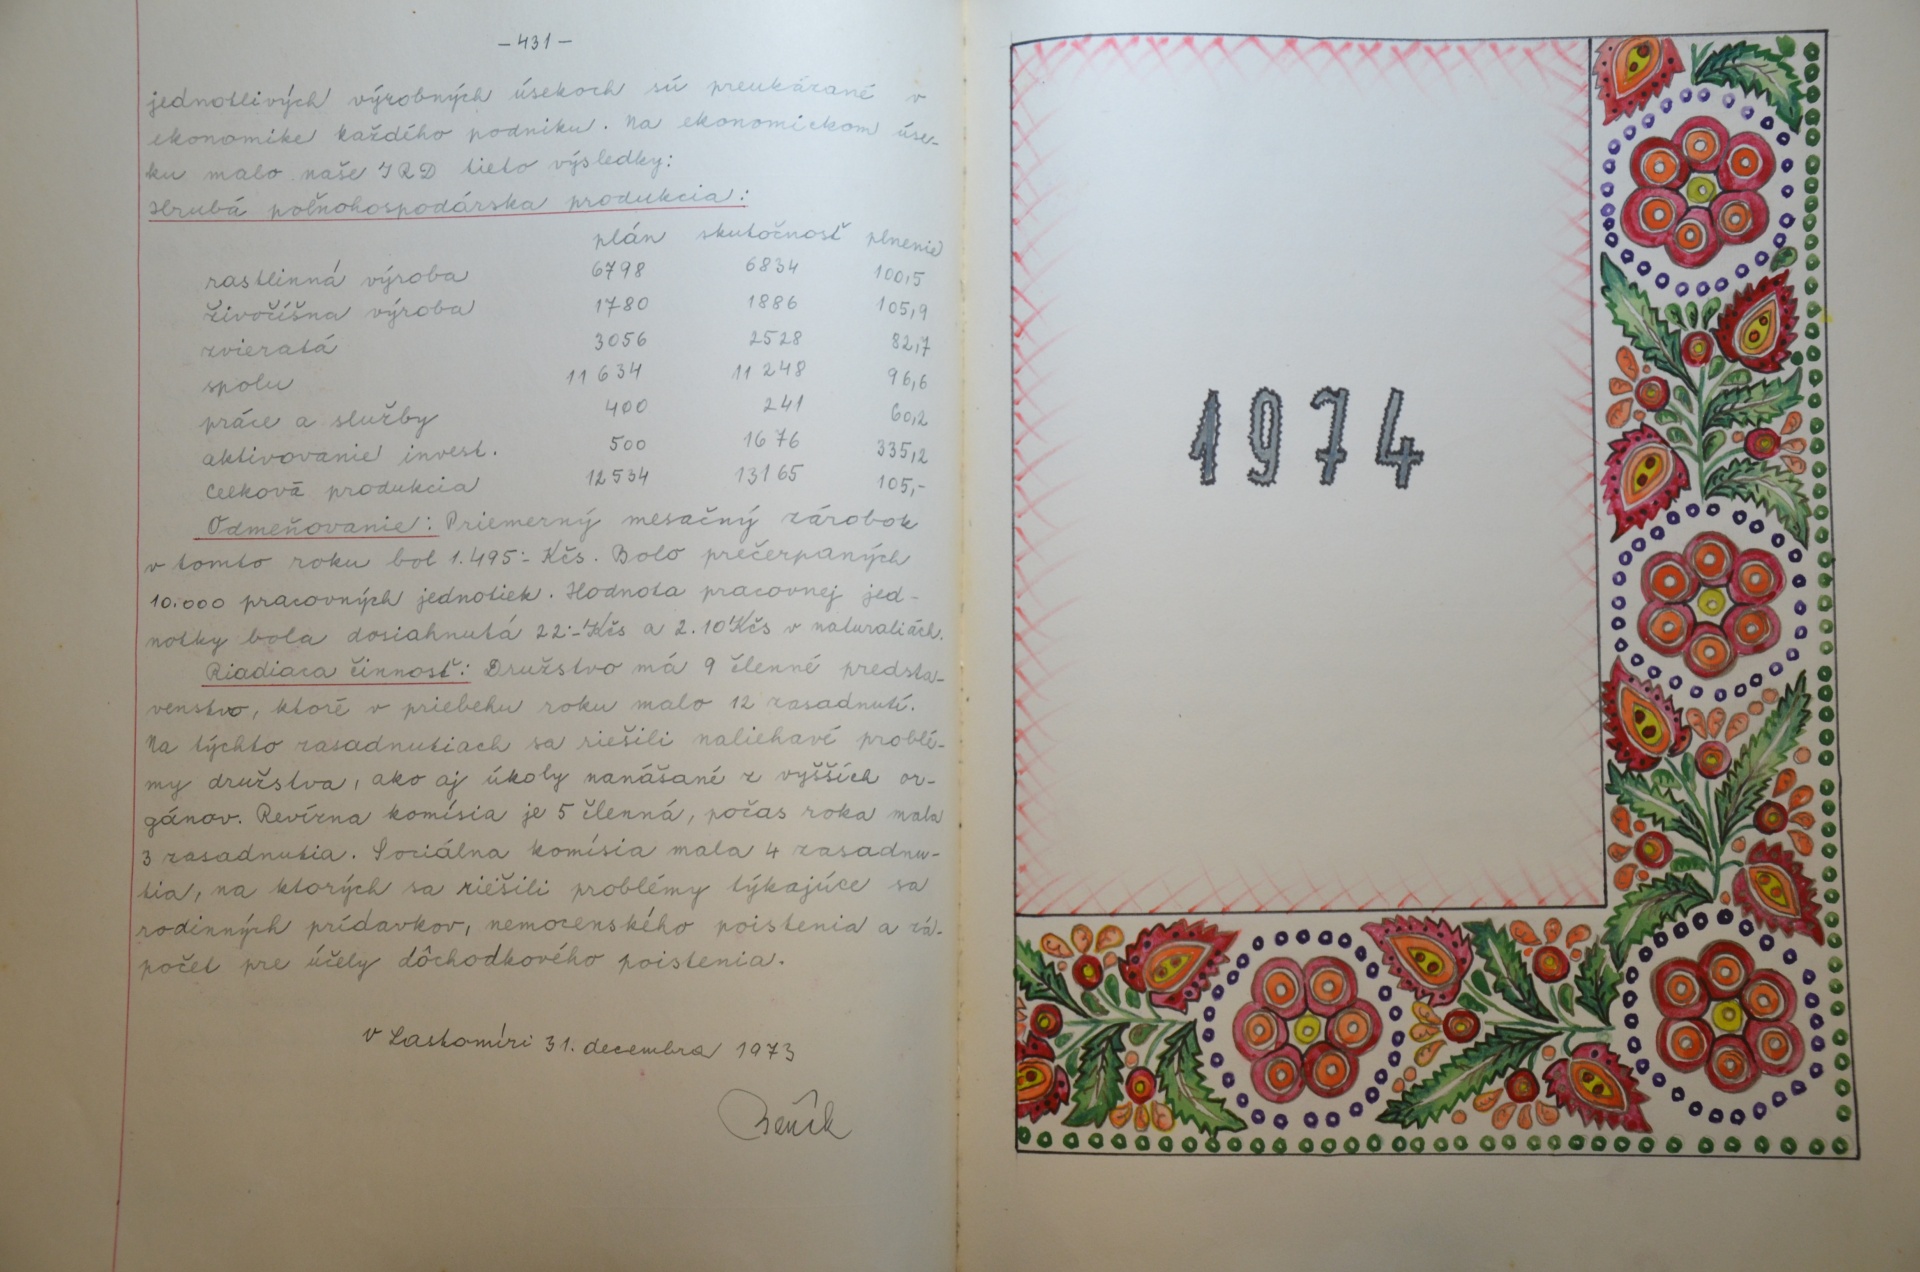 - 431 -
jednotlivých výrobných úsekoch sú preukázané v
ekonomike každého podniku. Na ekonomickom úse-
ku malo naše JRD tieto výsledky:
Hrubá poľnohospodárska produkcia:
plán skutočnosť plnenie
rastlinná výroba 6798 6834 100,5
živočíšna výroba 1780 1886 105,9
zvieratá 3056 2528 82,7
spolu 11 634 11 248 96,6
práce a služby 400 241 60,2
aktivovanie invest. 500 1676 335,2
Celková produkcia 12534 13165 105,-
Odmeňovanie: Priemerný mesačný zárobok
v tomto roku bol 1.495.- Kčs. Bolo prečerpaných
10.000 pracovných jednotiek. Hodnota pracovnej jed-
notky bola dosiahnutá 22.- Kčs a 2.10 Kčs v naturaliách.
Riadiaca činnosť: Družstvo má 9 členné predsta-
venstvo, ktoré v priebehu roku malo 12 zasadnutí.
Na týchto zasadnutiach sa riešili naliehavé problé-
my družstva, ako aj úkoly nanášané z vyšších or-
gánov. Revízna komísia je 5 členná, počas roka mala
3 zasadnutia. Sociálna komísia mala 4 zasadnu-
tia, na ktorých sa riešili problémy týkajúce sa
rodinných prídavkov, nemocenského poistenia a zá-
počet pre účely dôchodkového poistenia.
V Lastomíri 31. decembra 1973
1974